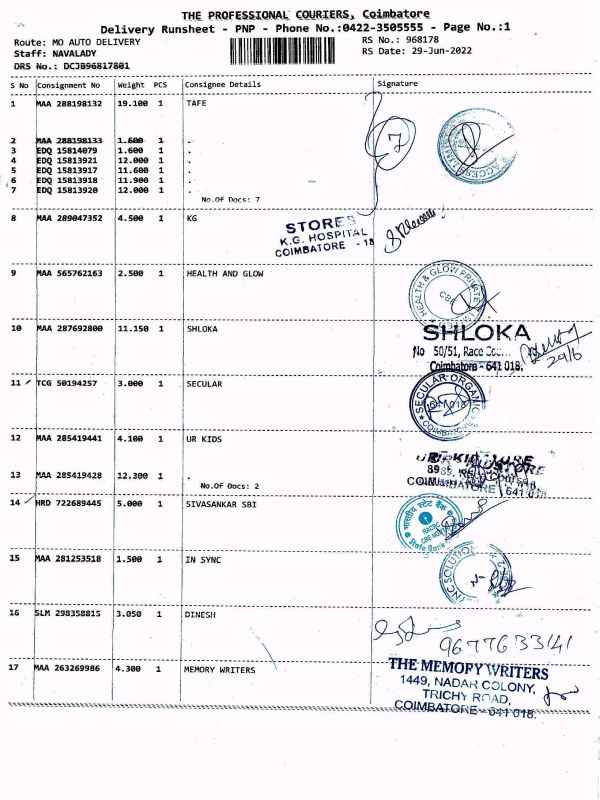 THE PROFESSIONAL COURIERS, Coimbatore
Delivery Runsheet - PNP - Phone No.:0422-3505555 - Page No.:1
Route: MO AUTO DELIVERY RS No.: 968178
Staff: NAVALADY RS Date: 29-Jun-2022
DRS No.: DCJB96817801
S No Consignment No Weight PCS Consignee Details Signature
1 MAA 288198132 19.100 1 TAFE
7
2 MAA 288198133 1.600 1 .
3 EDQ 15814079 1.600 1 .
4 EDQ 15813921 12.000 1 .
5 EDQ 15813917 11.600 1 .
6 EDQ 15813918 11.900 1 .
7 EDQ 15813920 12.000 1 .
No.Of Docs: 7
8 MAA 289047352 4.500 1 KG
STORES
K.G. HOSPITAL
COIMBATORE - 18
9 MAA 565762163 2.500 1 HEALTH AND GLOW
HEALTH & GLOW PRIVATE
CBE
10 MAA 287692800 11.150 1 SHLOKA
SHLOKA
No 50/51, Race
Coimbatore - 641 018.
29/6
11 TCG 50194257 3.000 1 SECULAR
SECULAR ORGANIC
641 018
COIMBATORE
12 MAA 285419441 4.100 1 UR KIDS
13 MAA 285419428 12.300 1 .
No.Of Docs: 2
STORE
89
COIMBATORE
641 018
14 HRD 722689445 5.000 1 SIVASANKAR SBI
भारतीय स्टेट बैंक
RACPC
State Bank
15 MAA 281253518 1.500 1 IN SYNC
SOLUTION
16 SLM 298358815 3.050 1 DINESH
9677633141
17 MAA 263269986 4.300 1 MEMORY WRITERS
THE MEMORY WRITERS
1449, NADAR COLONY,
TRICHY ROAD,
COIMBATORE - 641 018.